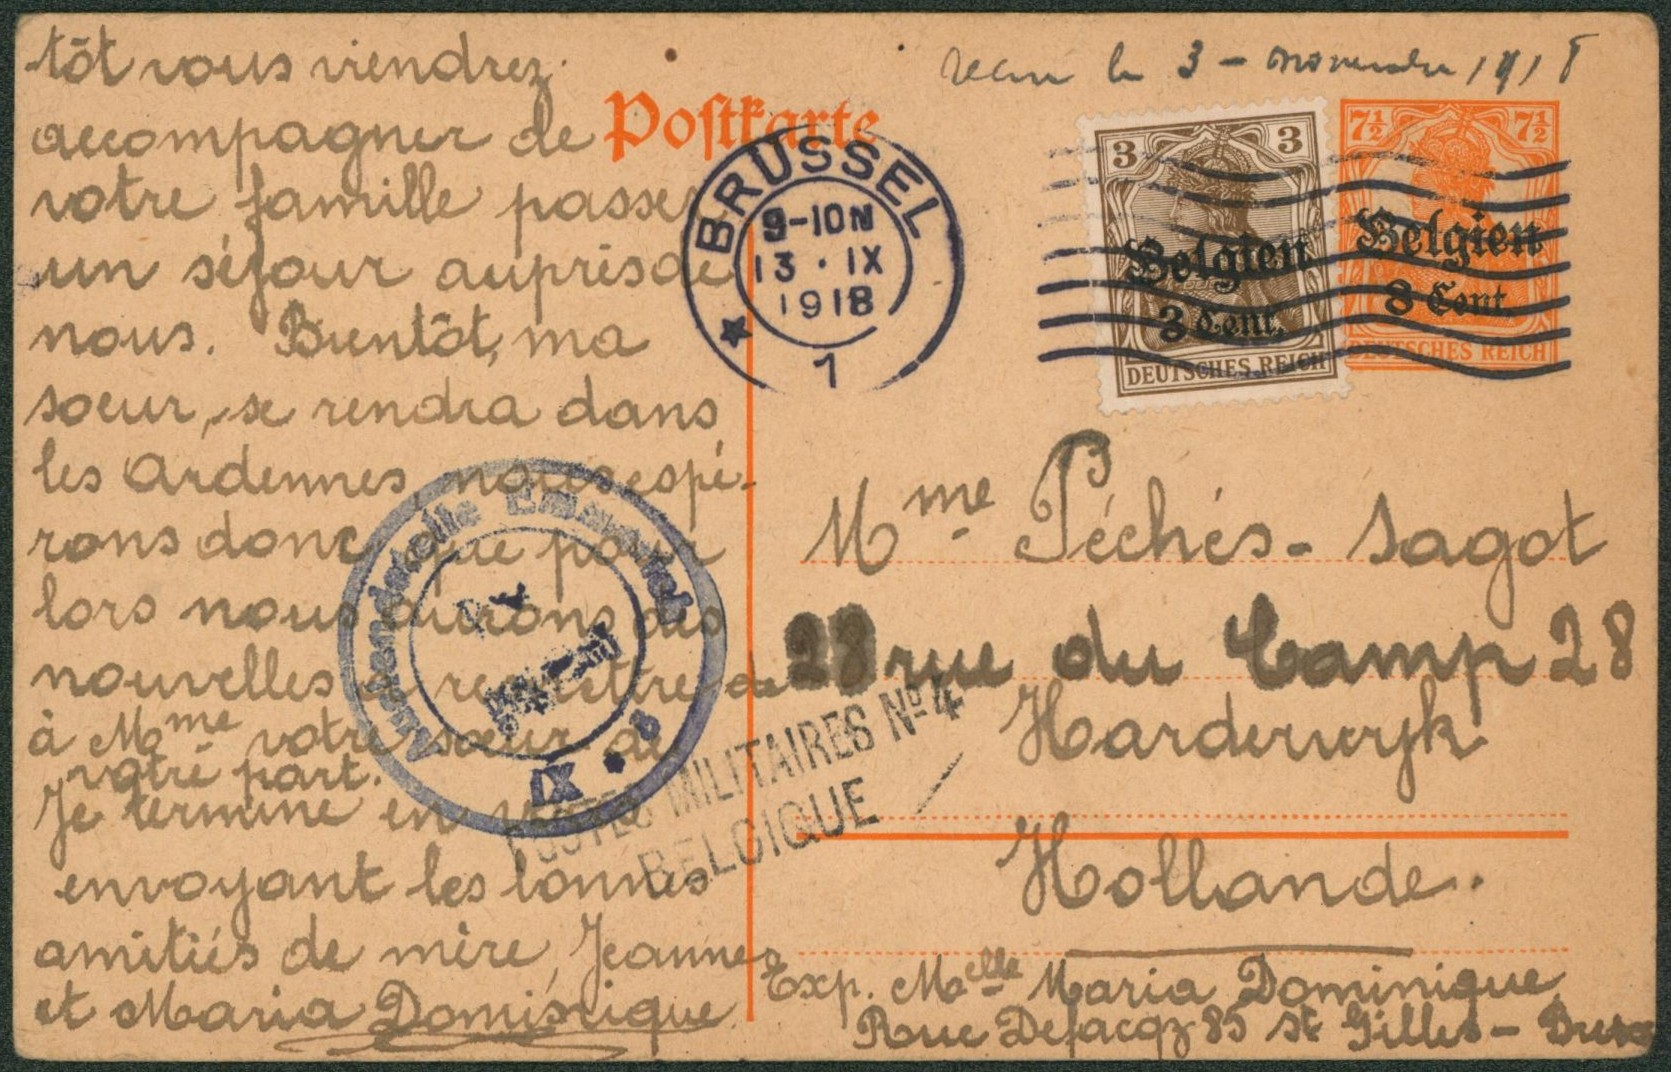 tôt vous viendrez
accompagner de
votre famille passer
un séjour auprès de
nous. Bientôt, ma
soeur, se rendra dans
les Ardennes nous espé-
rons donc que pour
lors nous aurons des
nouvelles à remettre de
à Mme votre soeur de
votre part.
Je termine en vous
envoyant les bonnes
amitiés de mère, Jeanne
et Maria Dominique
Postkarte
BRÜSSEL
9-10N
13.IX
1918
1
recu le 3 - novembre 1918
3 3
Belgien
3 Cent.
DEUTSCHES REICH
7½ 7½
Belgien
8 Cent.
DEUTSCHES REICH
IX
POSTES MILITAIRES No 4
BELGIQUE
Mme Péchés-Sagot
28 rue du Camp 28
Harderwyk
Hollande.
Exp. Melle Maria Dominique
Rue Defacqz 85 St Gilles - Brux